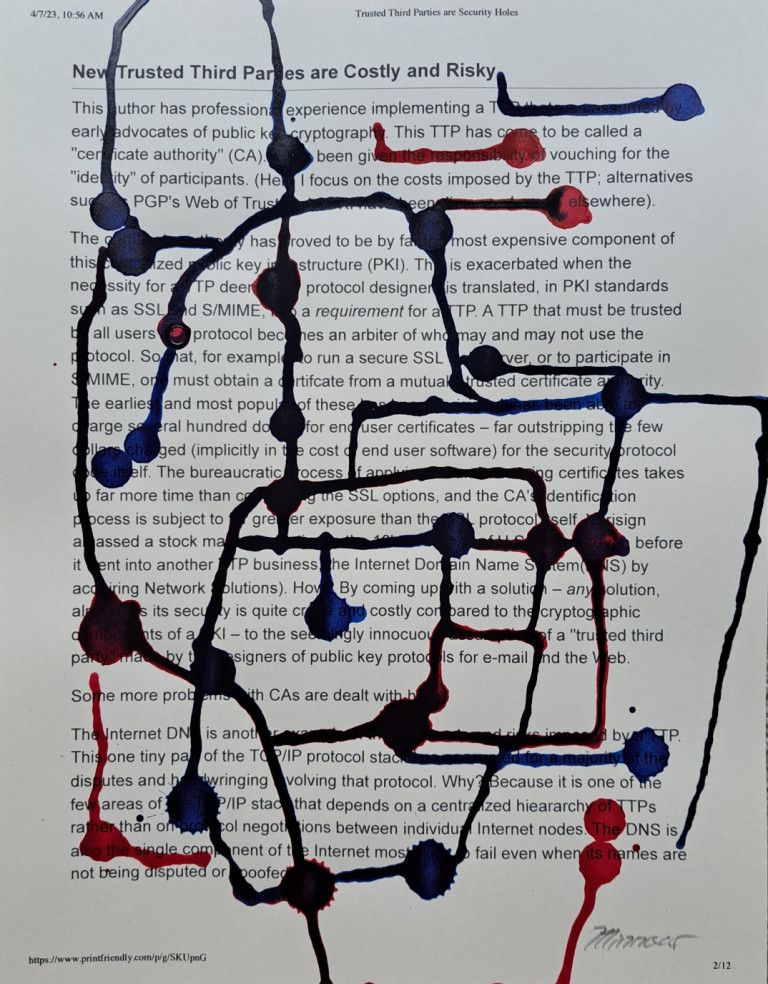 4/7/23, 10:56 AM Trusted Third Parties are Security Holes
New Trusted Third Parties are Costly and Risky
This author has professional experience implementing a TTP that was assumed by
early advocates of public key cryptography. This TTP has come to be called a
"certificate authority" (CA). been given the responsibility of vouching for the
"identity" of participants. (Here I focus on the costs imposed by the TTP; alternatives
such as PGP's Web of Trust been elsewhere).
The has proved to be by far most expensive component of
this centralized public key infrastructure (PKI). This is exacerbated when the
necessity for a TTP deemed protocol designers is translated, in PKI standards
such as SSL and S/MIME, to a requirement for a TTP. A TTP that must be trusted
by all users protocol becomes an arbiter of who may and may not use the
protocol. So that, for example, to run a secure SSL server, or to participate in
S/MIME, one must obtain a certifcate from a mutually trusted certificate authority.
The earliest and most popular of these has been able to
charge several hundred dollars for end user certificates – far outstripping the few
dollars charged (implicitly in the cost of end user software) for the security protocol
code itself. The bureaucratic process of applying certificates takes
up far more time than the SSL options, and the CA's identification
process is subject to far greater exposure than the SSL protocol itself. Verisign
amassed a stock ma before
it went into another TTP business, the Internet Domain Name System(DNS) by
acquiring Network Solutions). How? By coming up with a solution – any solution,
almost as its security is quite crude and costly compared to the cryptographic
components of a PKI – to the seemingly innocuous of a "trusted third
party" made by the designers of public key protocols for e-mail and the Web.
Some more problems with CAs are dealt with
The Internet DNS is another example and risks imposed by a TTP.
This one tiny part of the TCP/IP protocol stack for a majority of the
disputes and handwringing involving that protocol. Why? Because it is one of the
few areas of the TCP/IP stack that depends on a centralized hieararchy of TTPs
rather than on protocol negotiations between individual Internet nodes. The DNS is
also the single component of the Internet most likely to fail even when its names are
not being disputed or spoofed
https://www.printfriendly.com/p/g/SKUpnG 2/12